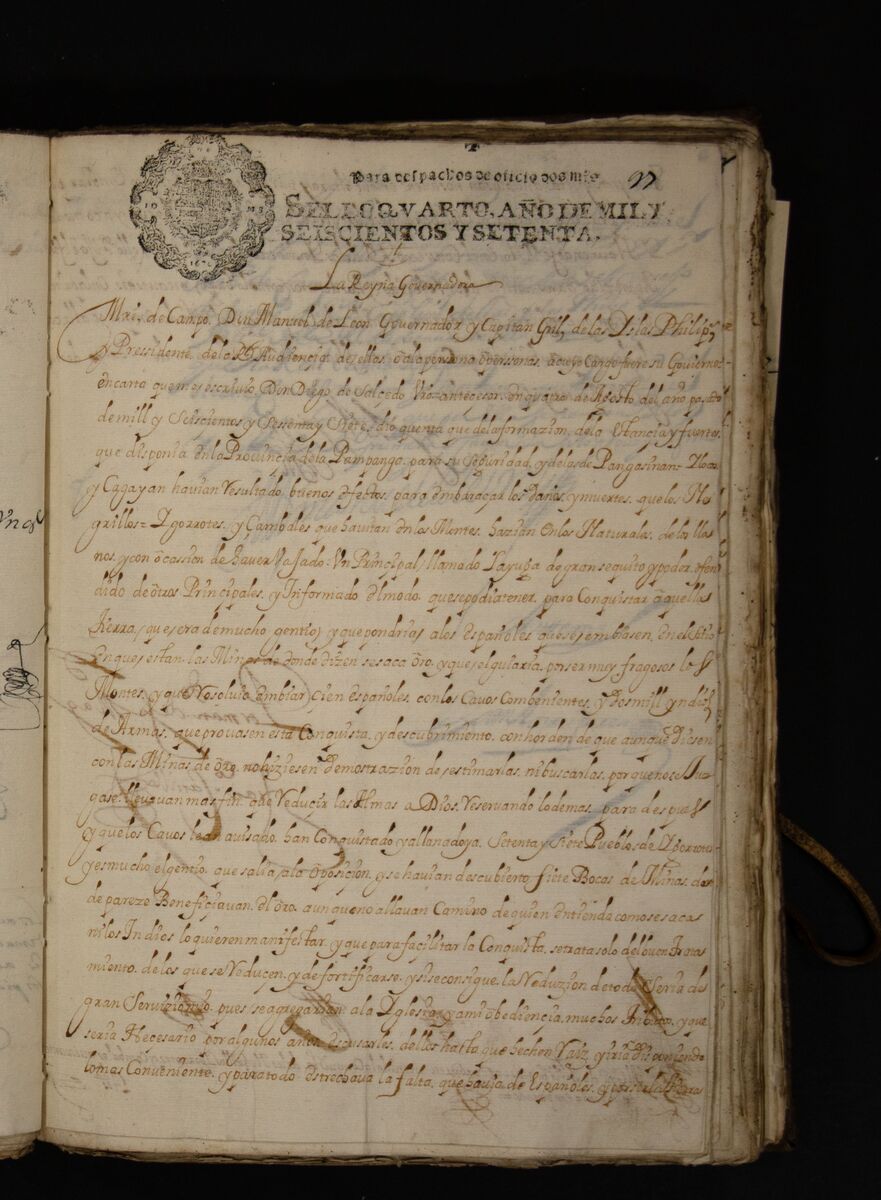 Para despachos de oficio dos mrs
97
SELLO QVARTO, AÑO DE MIL Y
SEISCIENTOS Y SETENTA.
La Reyna Governadora
Mre. de Campo. Don Manuel de Leon Governador y Capitan Grl. de las Yslas Philipas
y Pressidente. de la Rl. Audiençia de ellas. o a la persona o personas. a cuyo Cargo fuere su Govierno
en carta que me escrivio, Don Diego de Salcedo Vro. antecesor. en quatro de Agosto del año pasado
de mill y Seiscientos y Sessenta y Siete. dio quenta que de la formazion. de la Estançia y fuertes.
que disponia en la Provinçia de la Pampanga. para su Seguridad. y de las de Pangasinan=
y Cagayan havian Resultado. buenos efectos. para embaraçar los Daños. y muertes. que los Ne
grillos= Ygorrotes. y Cambales que havitan en los Montes. hazian en los Naturales. de los lla
nos. y con ocassion de haver Vajado. Vn Prinçipal llamado de gran sequito y poder. ofen
dido de otros Prinçipales. y Informado del modo. que se podia tener. para Conquistar aquella
tierra, que era de mucho gentio y que pondria a los Españoles que se embiasen. en el sitio
en que estan. las Minas de donde dizen se saca Oro. y que el guiaria. por ser muy fragosos los
Montes. y que Resoluio embiar çien españoles. con los Cavos Combenientes. y dos mill yndios
de Armas. que provasen esta Conquista. y descubrimiento. con horden de que aunque diesen
con las Minas de oro. no hiziesen demostrazion de estimarlas. ni buscarlas. porque no se Juz
gase. llevavan mas fin. que Reduçir las Almas a Dios. Reservando lo demas. para despues
y que los Cavos le an auisado. han Conquistado y allanado ya. Setenta y Siete Pueblos de Ygorrotes
y es mucho el gentio. que salia. a la oposiçion. y se havian descubierto siete Bocas de Minas. don
de pareze Benefiçiavan. el oro. aunque no allavan Camino de quien entienda como se saca
ni los Indios lo quieren manifestar. y que para façilitar la Conquista. se trata solo del buen trata
miento. de los que se Reduçen. y de fortificarse. y si se consigue. la Reduzion de todo Seria de
gran Servizio mio. pues se agregarian a la Yglesia, y a mi obediençia. muchos y que
seria Necesario por algunos años escusarles. dellos hasta que hechen Raiz. y iria disponiendo
lo mas Conveniente. y para todo estrechava la falta. que havia de Españoles. y por ser la tierra